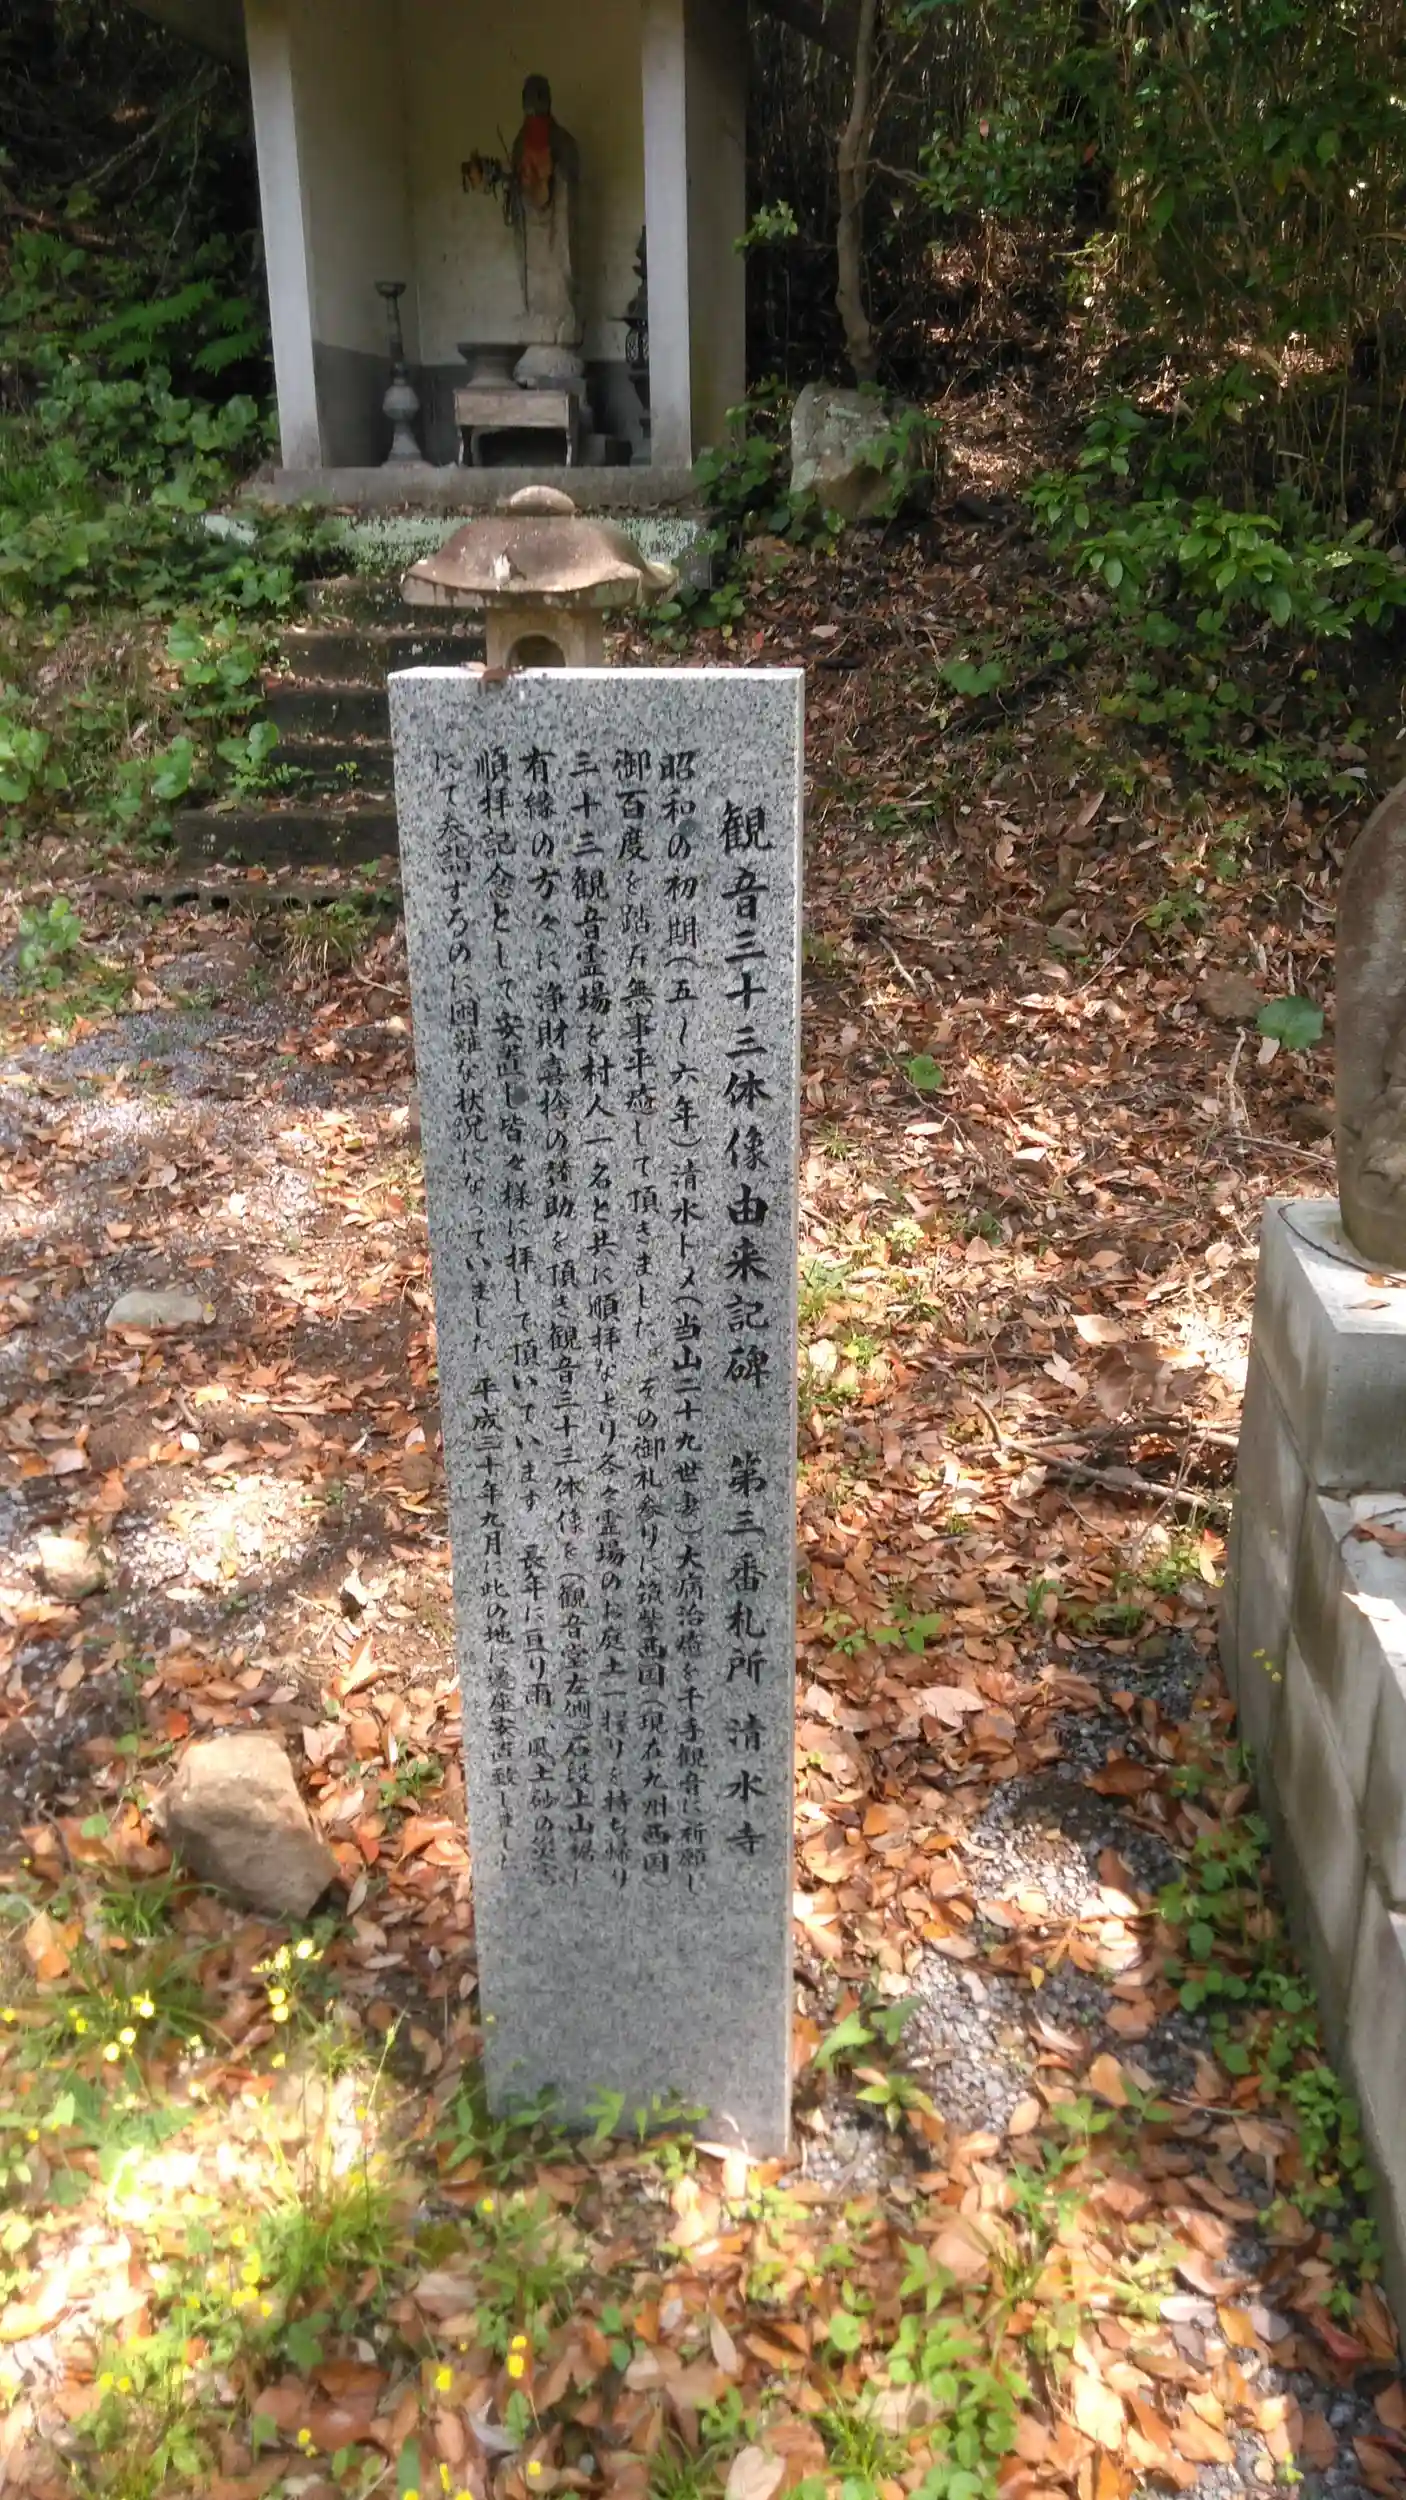 観音三十三体像由来記碑 第三番札所 清水寺
昭和の初期(五~六年)清水トメ(当山二十九世妻)大病治癒を千手観音に祈願し
御百度を踏み無事平癒して頂きました。その御礼参りに筑紫西国(現在九州西国)
三十三観音霊場を村人一名と共に順拝なせり各々霊場のお庭土一握りを持ち帰り
有縁の方々に浄財喜捨の賛助を頂き観音三十三体像を(観音堂左側)石段上山裾に
順拝記念として安置し皆々様に拝して頂いています 長年に亘り雨、風土砂の災害
にて参詣するのに困難な状況になっていました 平成三十年九月に此の地に遷座安置致しました